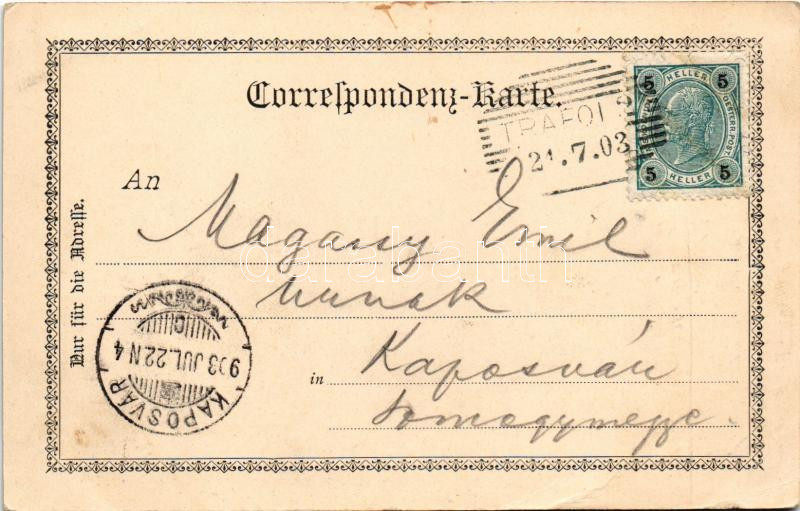 Correspondenz-Karte.
TRAFOI
21.7.03
5 HELLER 5
OESTERR. POST.
5 HELLER 5
An
Magassy Emil
urnak
in Kaposvár
Somogymegye.
Nur für die Adresse.
903 JUL. 22 N 4
KAPOSVÁR
darabanth